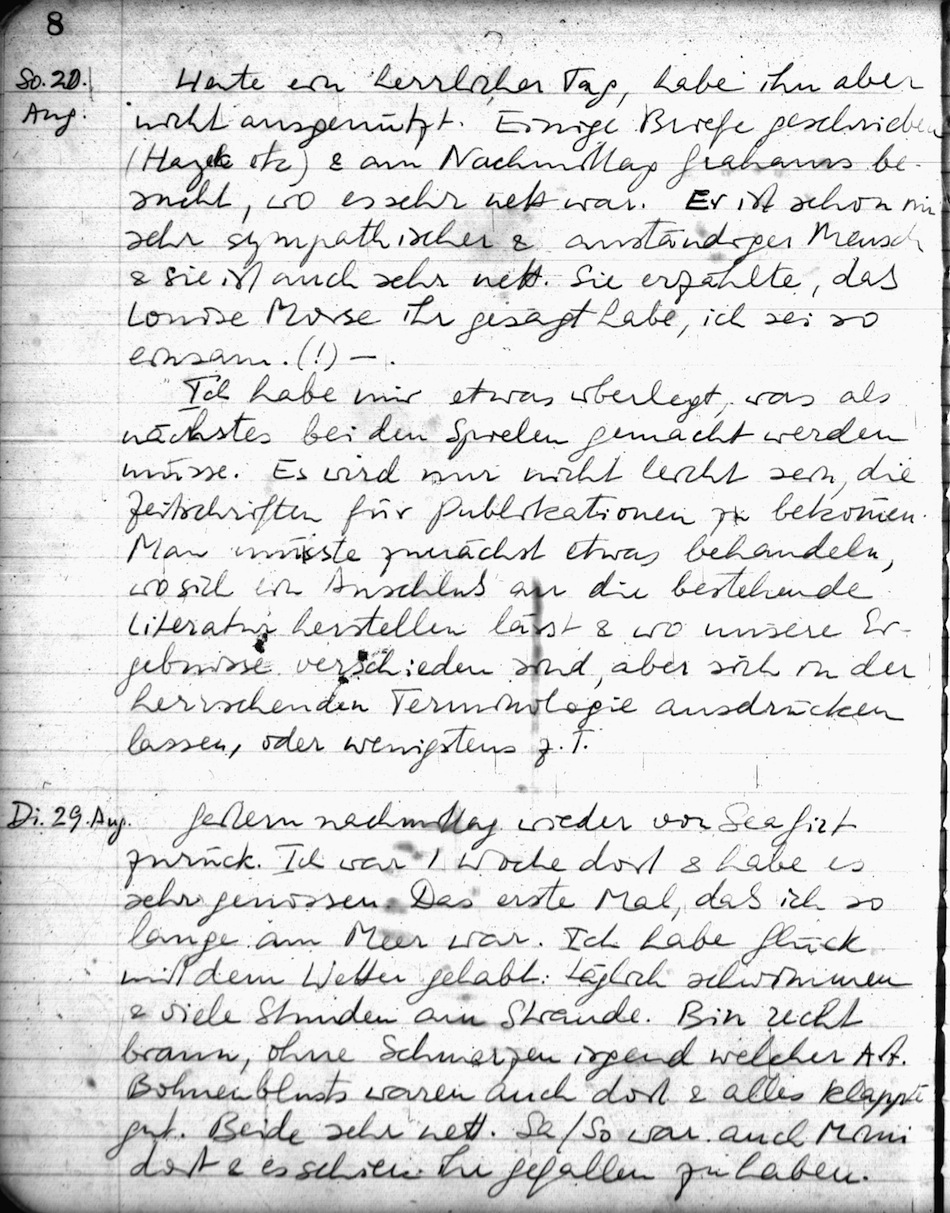 8
So. 20. Aug. Heute ein herrlicher Tag, habe ihn aber
nicht ausgenützt. Einige Briefe geschrieben
(Hazel etc) & am Nachmittag Grahams be-
sucht, wo es sehr nett war. Er ist schon ein
sehr sympathischer & anständiger Mensch
& sie ist auch sehr nett. Sie erzählte, daß
Louise Morse ihr gesagt habe, ich sei so
einsam. (!) –.
Ich habe mir etwas überlegt, was als
nächstes bei den Spielen gemacht werden
müsse. Es wird nur nicht leicht sein, die
Zeitschriften für Publikationen zu bekommen.
Man müsste zunächst etwas behandeln,
wo sich ein Anschluß an die bestehende
Literatur herstellen lässt & wo unsere Er-
gebnisse verschieden sind, aber sich in der
herrschenden Terminologie ausdrücken
lassen, oder wenigstens z.T.
Di. 29. Aug. Gestern nachmittag wieder von Seagirt
zurück. Ich war 1 Woche dort & habe es
sehr genossen. Das erste Mal, daß ich so
lange am Meer war. Ich habe Glück
mit dem Wetter gehabt: täglich schwimmen
& viele Stunden am Strande. Bin recht
braun, ohne Schmerzen irgend welcher Art.
Bohnenblusts waren auch dort & alles klappte
gut. Beide sehr nett. Sa/So war auch Mimi
dort & es schien ihr gefallen zu haben.